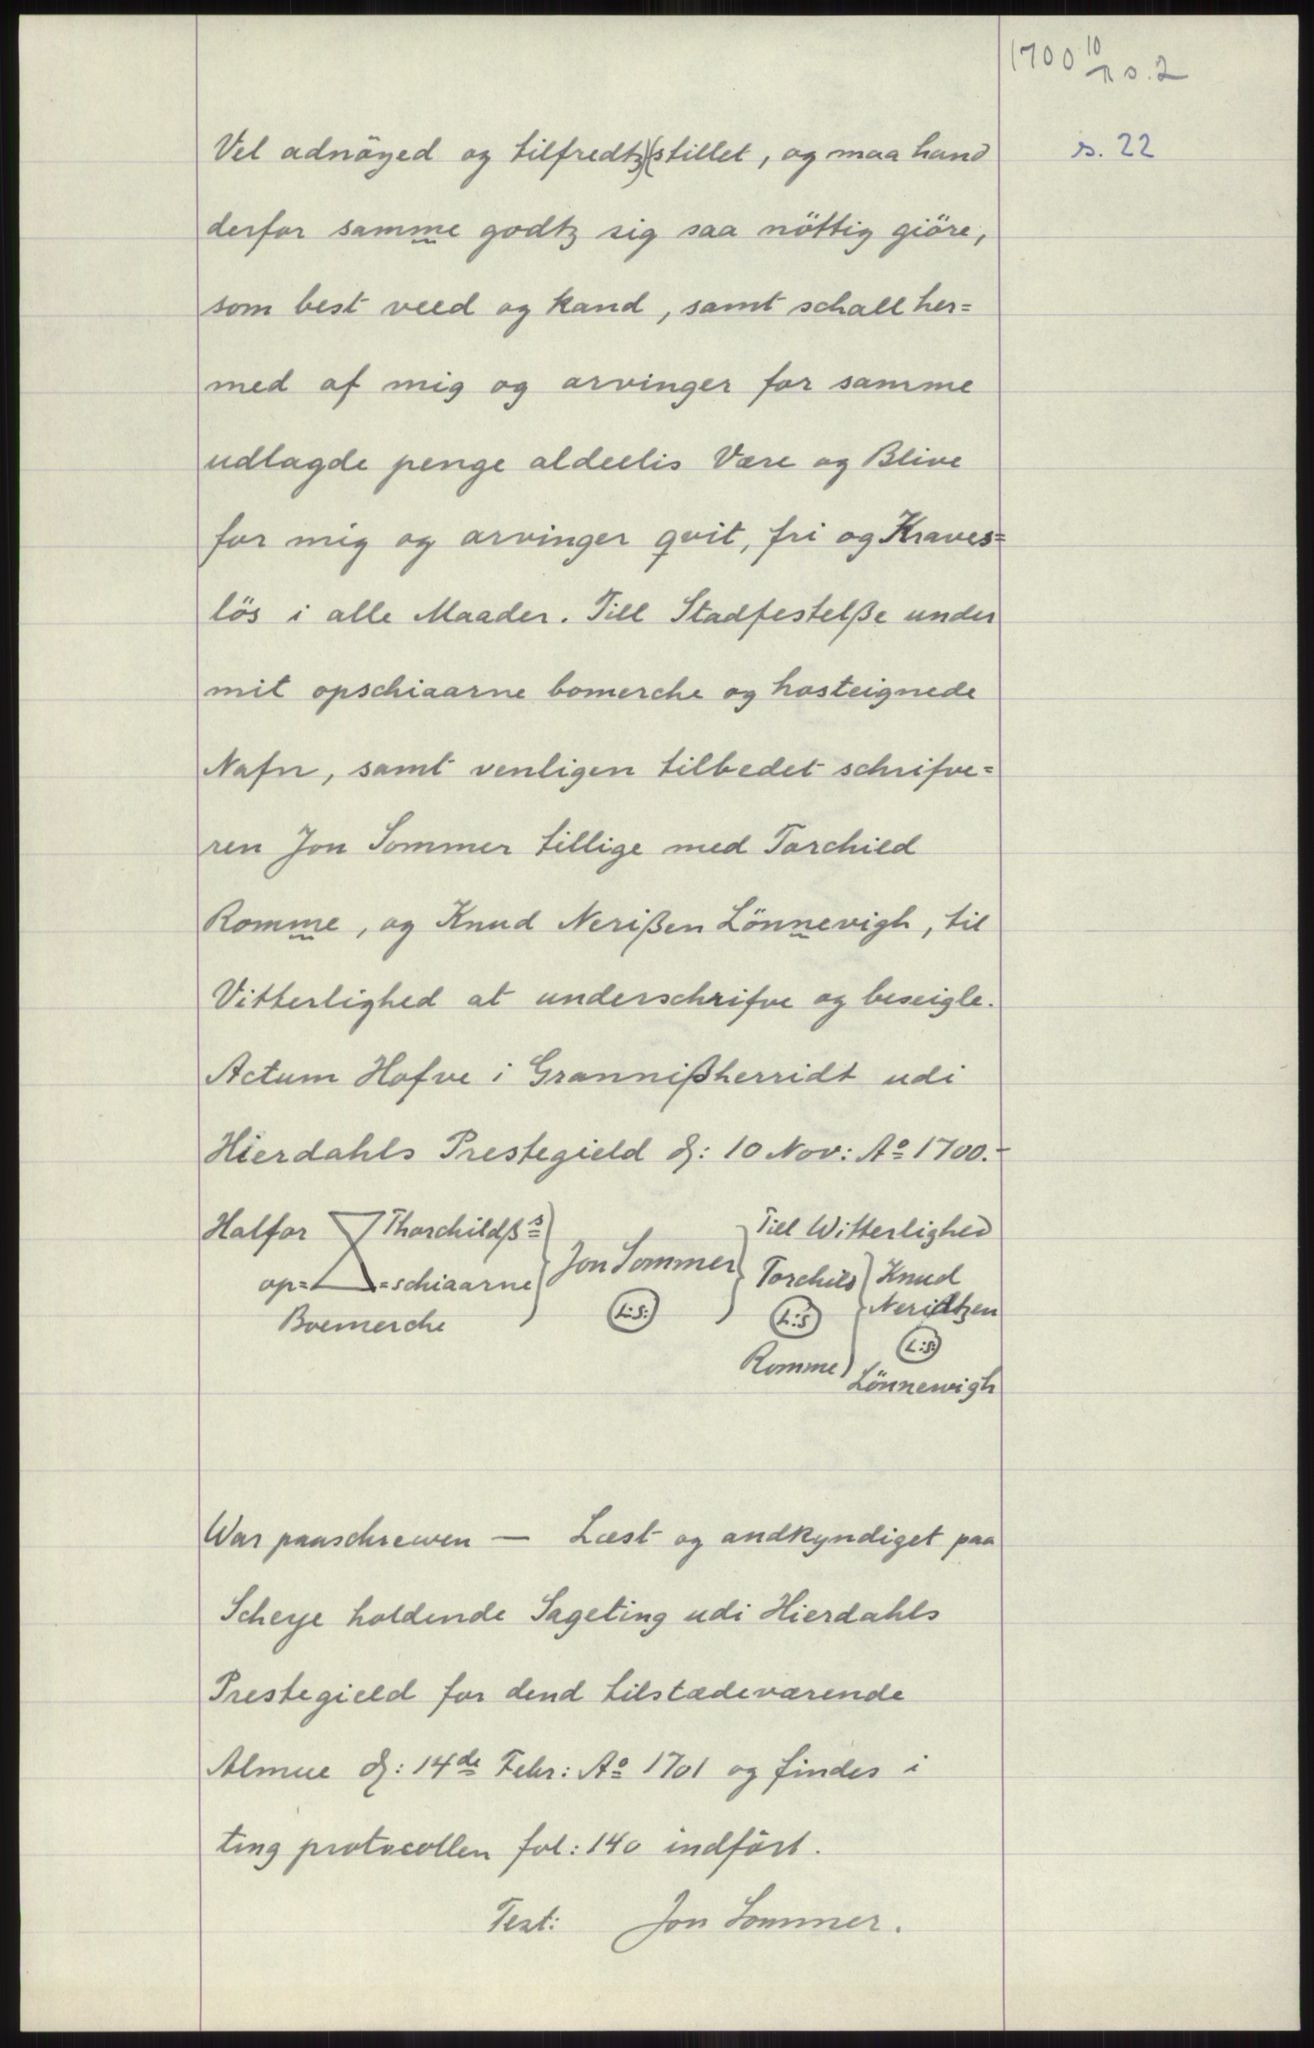 1700 10/11 s. 2
Vel adnöyed og tilfredtz(stillet, og maa hand
s. 22
derfor samme godtz sig saa nöttig giöre,
som best veed og kand, samt schall her=
med af mig og arvinger for samme
udlagde penge aldeelis Være og Blive
for mig og arvinger qvit, fri og Kraves=
lös i alle Maader. Till Stadfestelße under
mit opschiaarne bomerche og hosteignede
Nafn, samt venligen tilbedet schrifve=
ren Jon Sommer tillige med Torchild
Romme, og Knud Nerißen Lönnevigh, til
Vitterlighed at underschrifve og beseigle.
Actum Hofve i Grannißherridt udi
Hierdahls Prestegield d: 10 Nov: Aº 1700.-
Halfor Thorchildßs
op= =schiaarne
Boemerche
Jon Sommer
L:S:
Till Witterlighed
Torchild
L:S
Romme
Knud
Neridtzen
L:S:
Lönnewigh
War paaschrewen — Læst og andkyndiget paa
Scheye holdende Sageting udi Hierdahls
Prestegield for dend tilstædeværende
Almue d: 14de Febr: Aº 1701 og findes i
ting protocollen fol: 140 indfört.
Test: Jon Sommer.